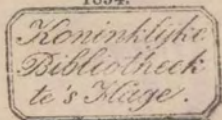 1854.
Koninklijke
Bibliotheek
te's Hage.